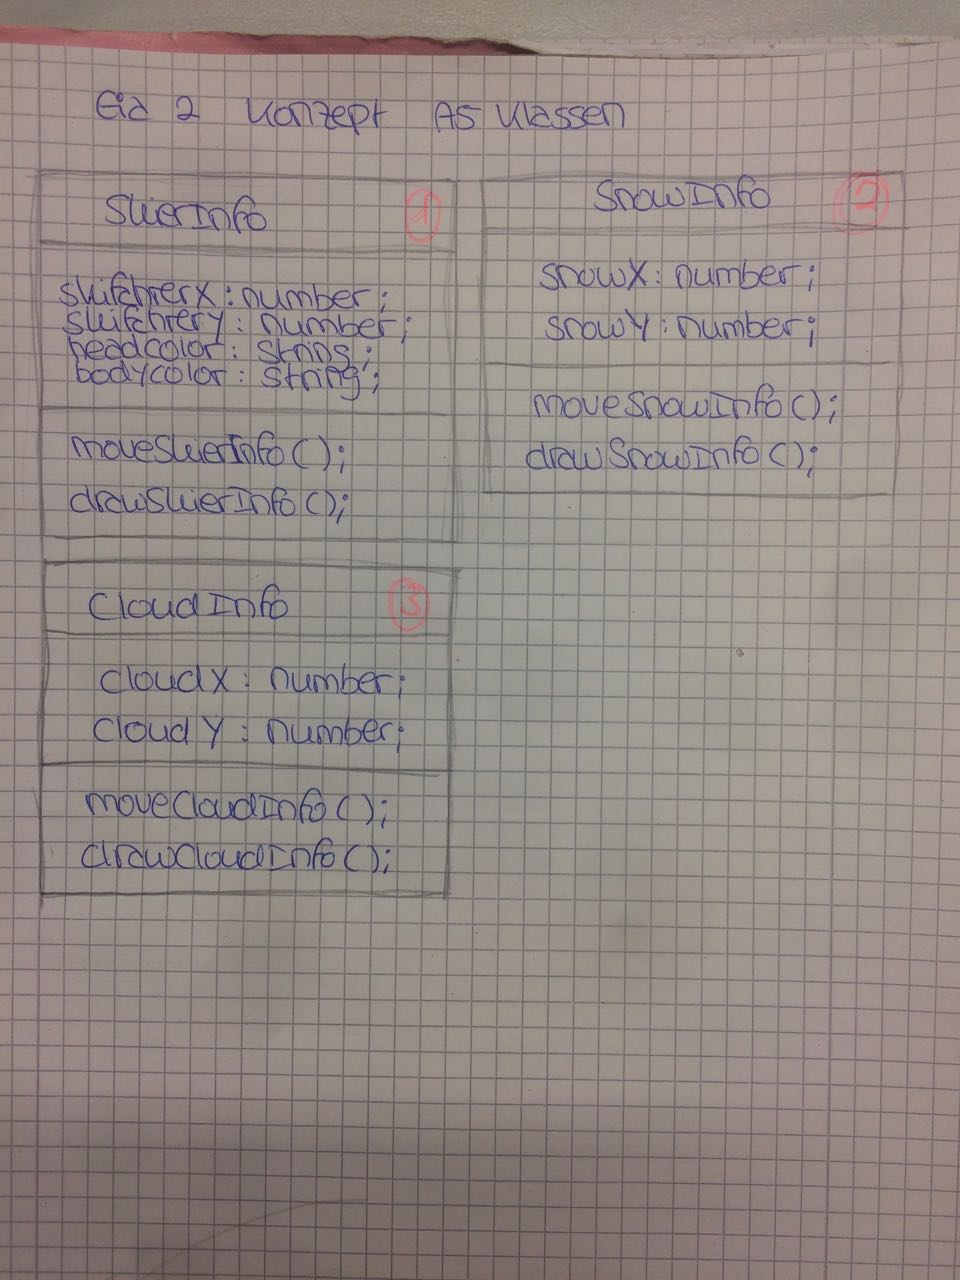 Eia 2 Konzept A5 Klassen
SkierInfo 1
skifahrerX : number;
skifahrerY : number;
headcolor : string;
bodycolor : string;
moveSkierInfo ();
drawSkierInfo ();
SnowInfo 2
snowX : number;
snowY : number;
moveSnowInfo ();
drawSnowInfo ();
CloudInfo 3
cloudX : number;
cloudY : number;
moveCloudInfo ();
drawCloudInfo ();